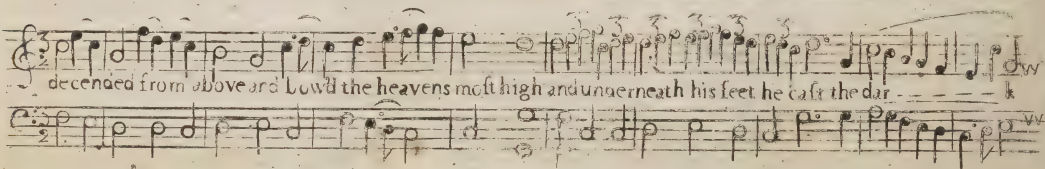 decended from above and bow'd the heavens moſt high and underneath his feet he caſt the dar - - - - - k